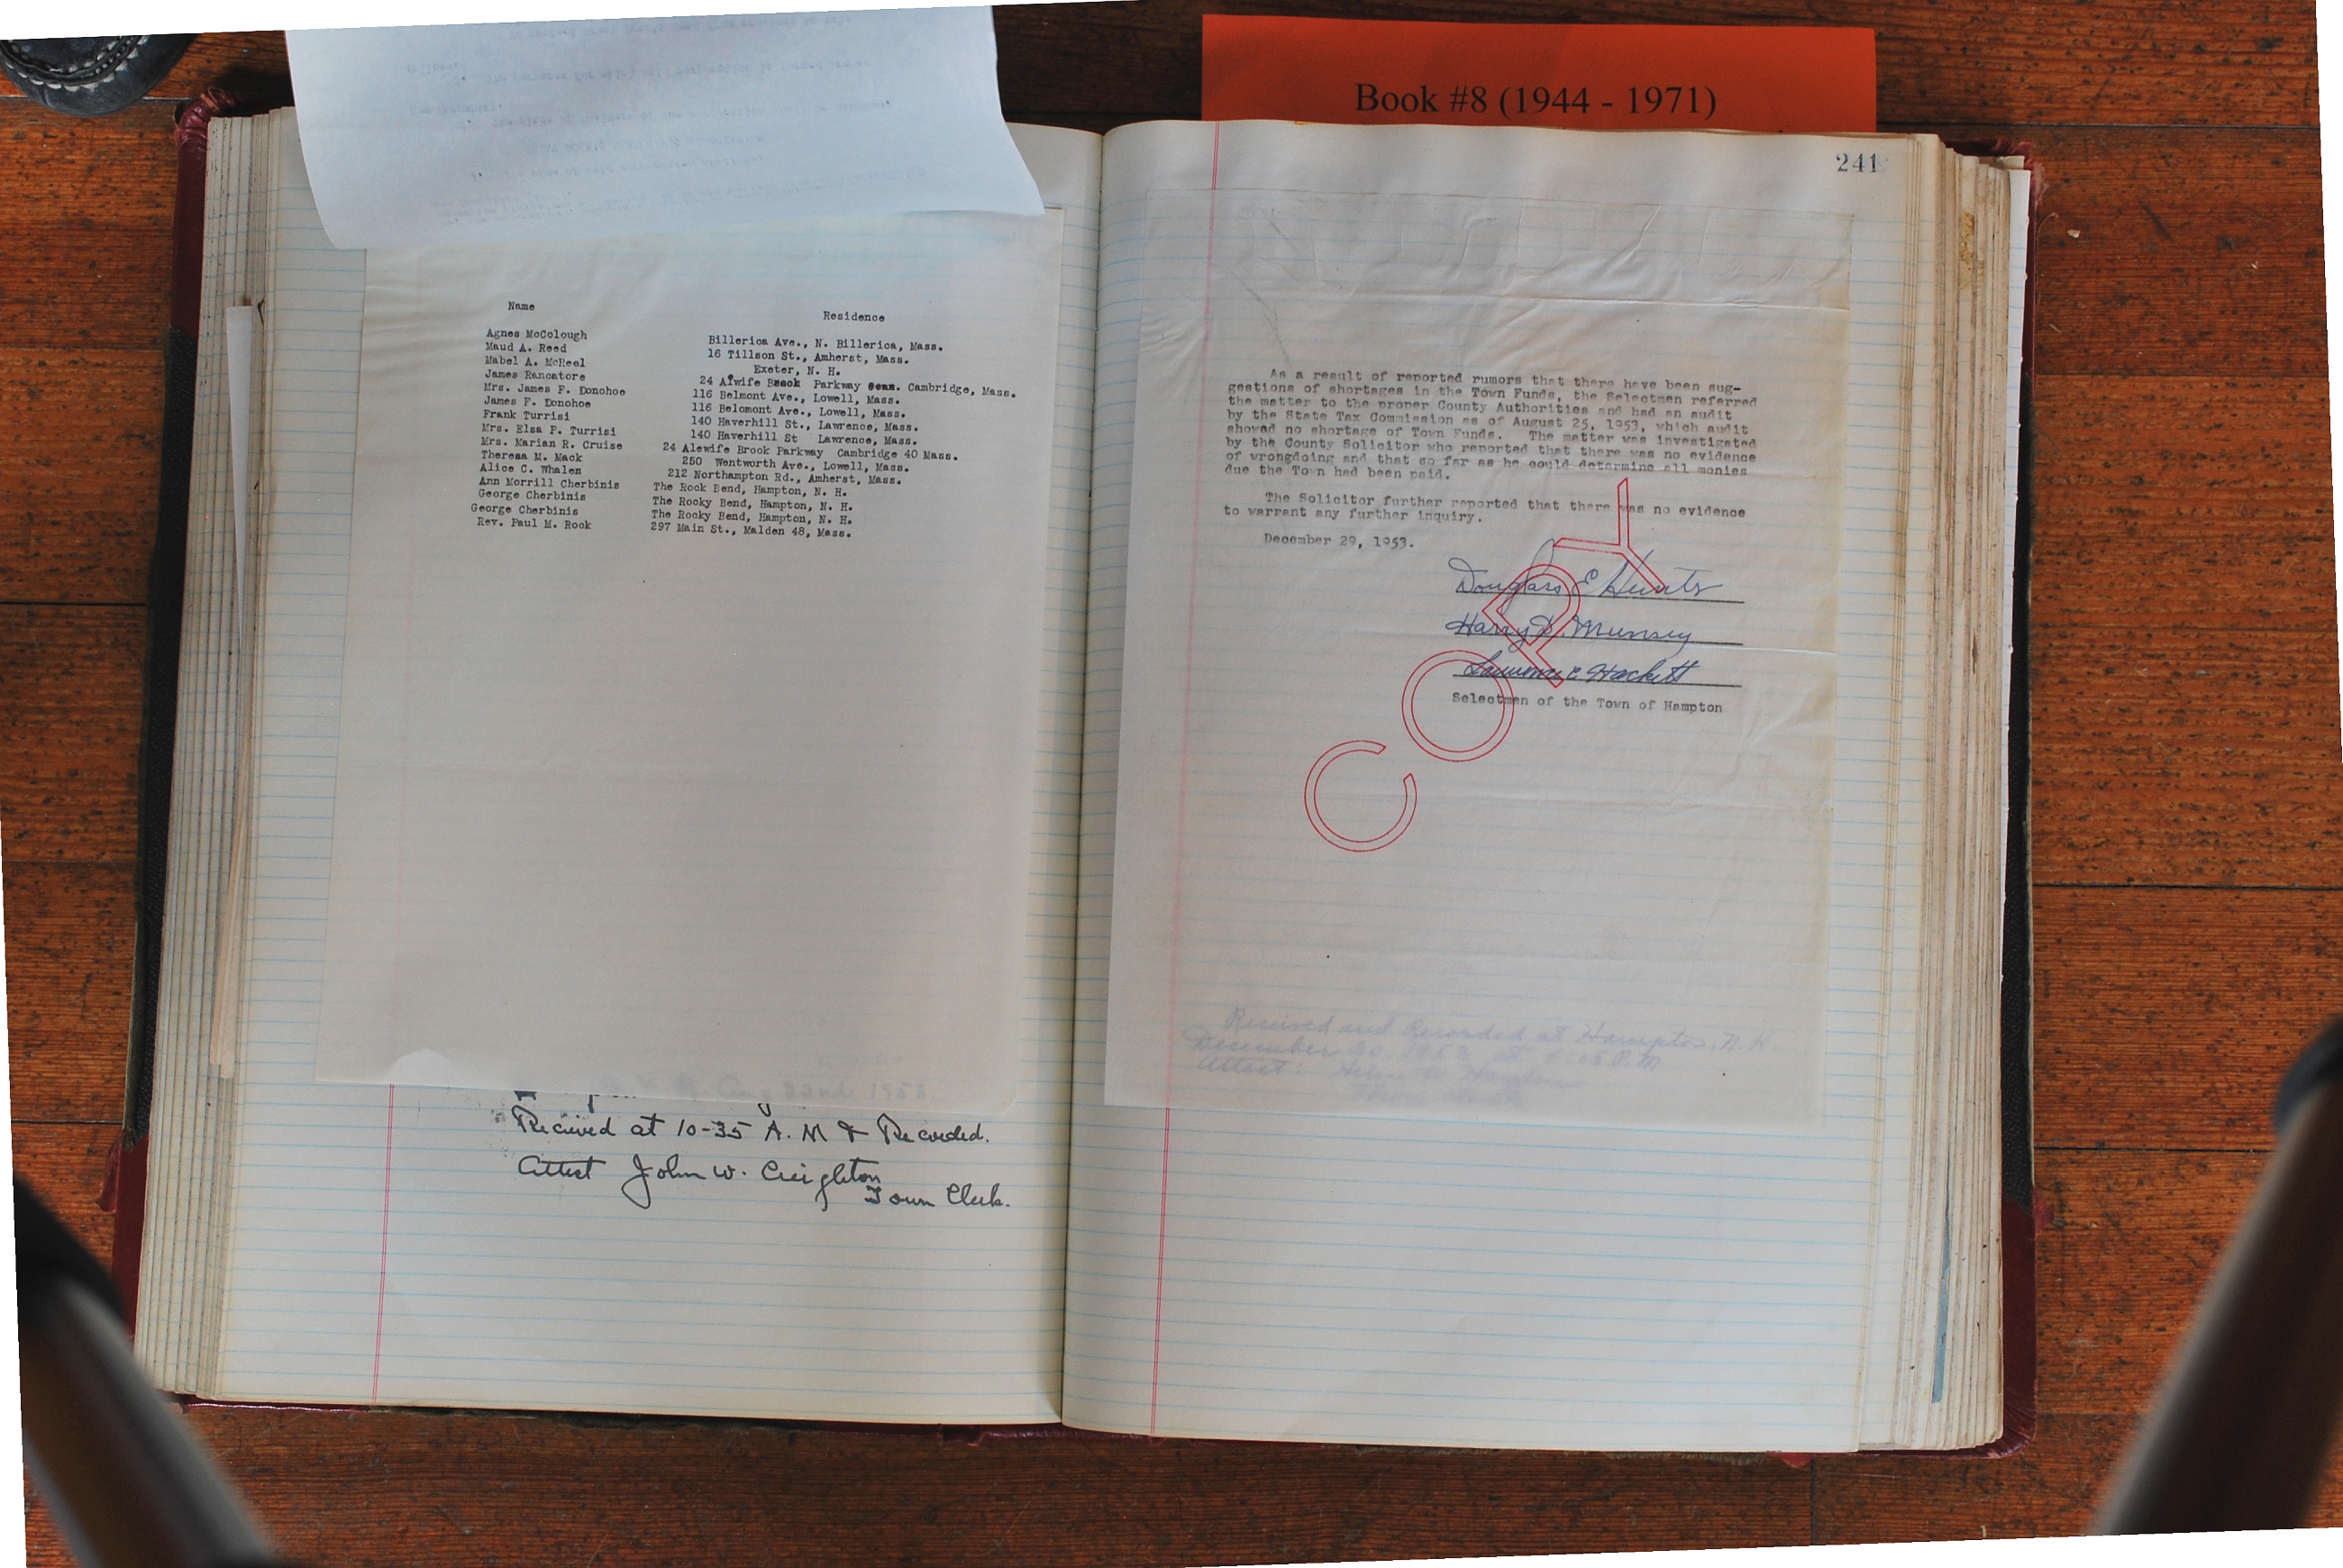 Book #8 (1944 - 1971)
Name Residence
Agnes McColough Billerica Ave., N. Billerica, Mass.
Maud A. Reed 16 Tillson St., Amherst, Mass.
Mabel A. McReel Exeter, N. H.
James Rancatore 24 Alwife Brook Parkway Cambridge, Mass.
Mrs. James F. Donohoe 116 Belmont Ave., Lowell, Mass.
James F. Donohoe 116 Belomont Ave., Lowell, Mass.
Frank Turrisi 140 Haverhill St., Lawrence, Mass.
Mrs. Elsa P. Turrisi 140 Haverhill St Lawrence, Mass.
Mrs. Marian R. Cruise 24 Alewife Brook Parkway Cambridge 40 Mass.
Theresa M. Mack 250 Wentworth Ave., Lowell, Mass.
Alice C. Whalen 212 Northampton Rd., Amherst, Mass.
Ann Morrill Cherbinis The Rock Bend, Hampton, N. H.
George Cherbinis The Rocky Bend, Hampton, N. H.
George Cherbinis The Rocky Bend, Hampton, N. H.
Rev. Paul M. Rock 297 Main St., Malden 48, Mass.
Aug 22nd 1953.
Recieved at 10-35 A. M & Recorded.
Attest John W. Creighton
Town Clerk.
241
As a result of reported rumors that there have been sug-
gestions of shortages in the Town Funds, the Selectmen referred
the matter to the proper County Authorities and had an audit
by the State Tax Commission as of August 25, 1953, which audit
showed no shortage of Town Funds. The matter was investigated
by the County Solicitor who reported that there was no evidence
of wrongdoing and that so far as he could determine all monies
due the Town had been paid.
The Solicitor further reported that there was no evidence
to warrant any further inquiry.
December 29, 1953.
Douglass E Hunter
Harry D. Munsey
Lawrence C Hackett
Selectmen of the Town of Hampton
COPY
Received and Recorded at Hampton, N. H.
December 30, 1953 at P.M
Attest: Helen W.
Town Clerk